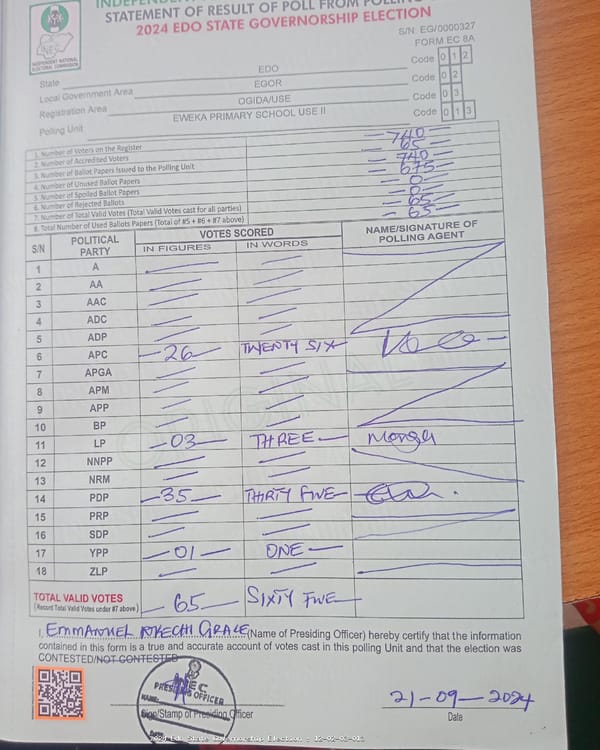 STATEMENT OF RESULT OF POLL FROM POLLING
2024 EDO STATE GOVERNORSHIP ELECTION
S/N: EG/0000327
FORM EC 8A
INEC
INDEPENDENT NATIONAL ELECTORAL COMMISSION
State EDO Code 0 1 2
Local Government Area EGOR Code 0 2
Registration Area OGIDA/USE Code 0 3
Polling Unit EWEKA PRIMARY SCHOOL USE II Code 0 1 3
1. Number of Voters on the Register 740
2. Number of Accredited Voters 65
3. Number of Ballot Papers Issued to the Polling Unit 740
4. Number of Unused Ballot Papers 675
5. Number of Spoiled Ballot Papers 0
6. Number of Rejected Ballots 0
7. Number of Total Valid Votes (Total Valid Votes cast for all parties) 65
8. Total Number of Used Ballots Papers (Total of #5 + #6 + #7 above) 65
S/N POLITICAL PARTY VOTES SCORED NAME/SIGNATURE OF POLLING AGENT
IN FIGURES IN WORDS
1 A
2 AA
3 AAC
4 ADC
5 ADP
6 APC 26 TWENTY SIX
7 APGA
8 APM
9 APP
10 BP
11 LP 03 THREE
12 NNPP
13 NRM
14 PDP 35 THIRTY FIVE
15 PRP
16 SDP
17 YPP 01 ONE
18 ZLP
TOTAL VALID VOTES 65 SIXTY FIVE
(Record Total Valid Votes under #7 above)
I, EMMANUEL NKECHI GRACE (Name of Presiding Officer) hereby certify that the information
contained in this form is a true and accurate account of votes cast in this polling Unit and that the election was
CONTESTED/NOT CONTESTED
INEC
PRESIDING OFFICER
NAME:
Sign/Stamp of Presiding Officer
Date:
21-09-2024
Date
2024 Edo State Governorship Election : 12-02-03-013
ORIGINAL